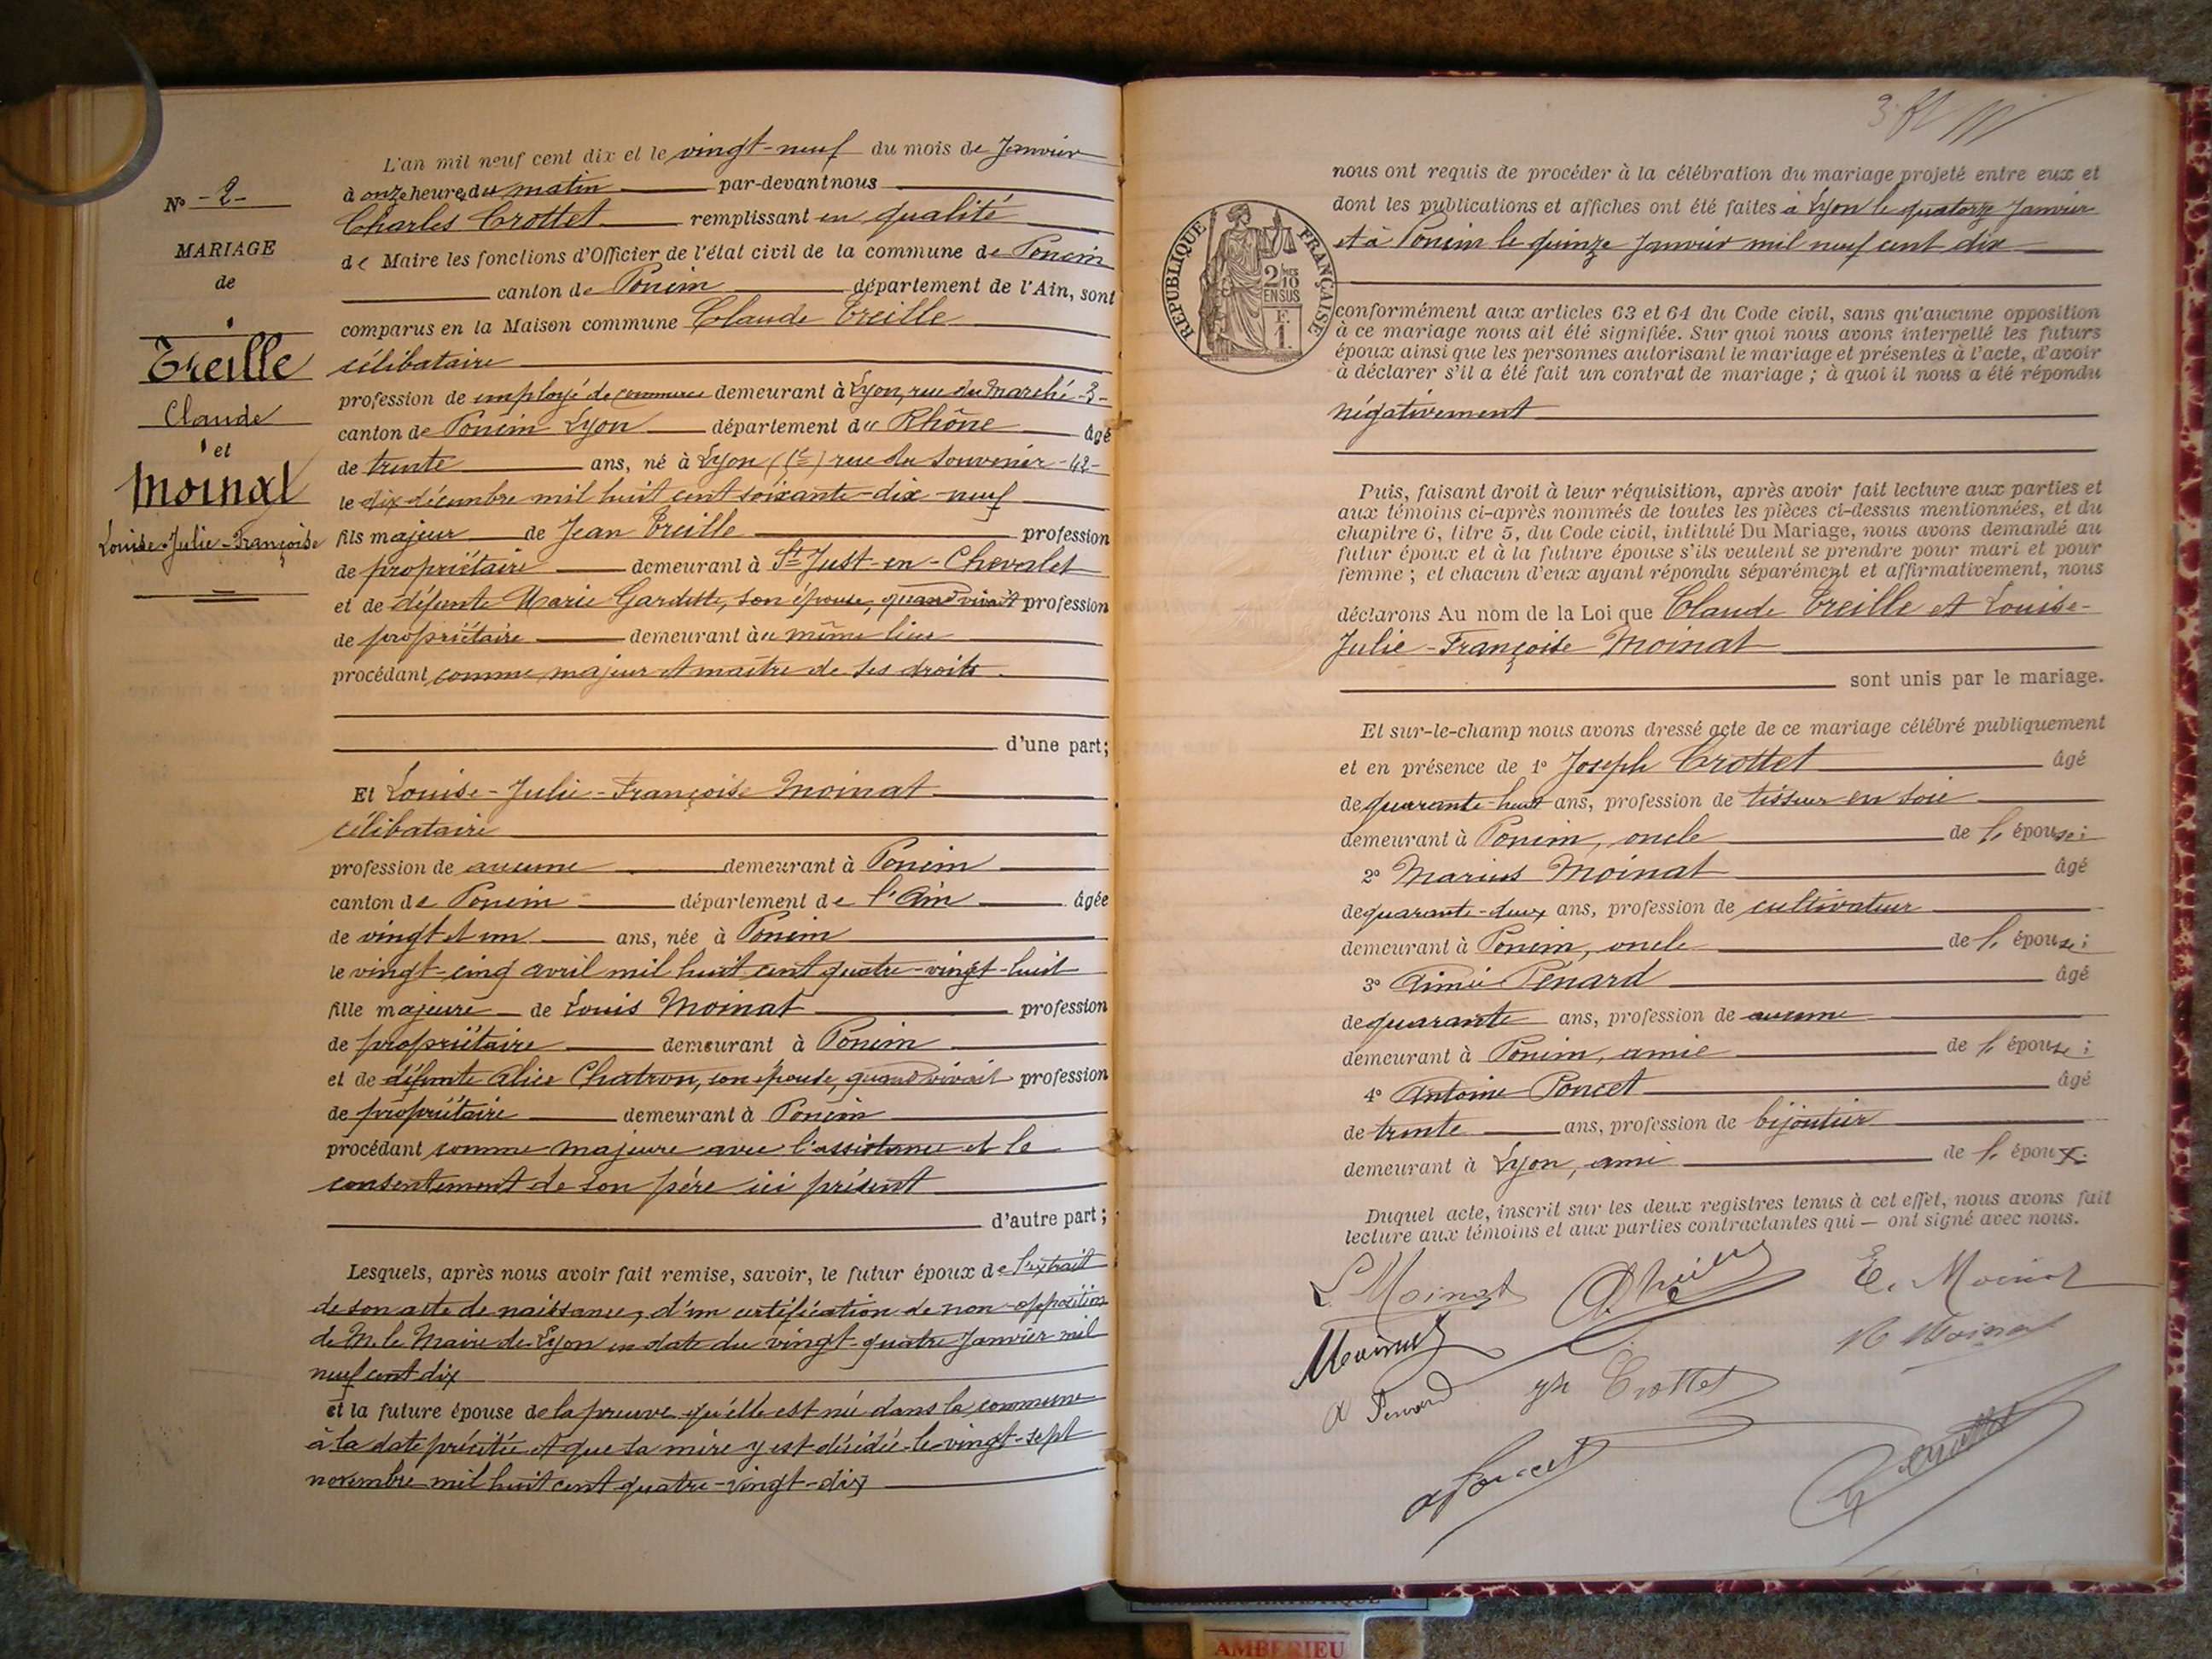 L'an mil neuf cent dix et le vingt-neuf du mois de Janvier
à onze heures du matin par-devant nous
Charles Crottet remplissant en qualité
de Maire les fonctions d'Officier de l'état civil de la commune de Poncin
canton de Poncin département de l'Ain, sont
comparus en la Maison commune Claude Treille
célibataire
profession de employé de commerce demeurant à Lyon, rue du Marché -3-
canton de Poncin Lyon département du Rhône âgé
de trente ans, né à Lyon rue du Souvenir -42-
le dix décembre mil huit cent soixante-dix-neuf
fils majeur de Jean Treille profession
de propriétaire demeurant à St Just-en-Chevalet
et de défunte Marie Gardette, son épouse, quand vivait profession
de propriétaire demeurant au même lieu
procédant comme majeur et maître de ses droits
d'une part;
Et Louise-Julie-Françoise Moinat
célibataire
profession de aucune demeurant à Poncin
canton de Poncin département de l'Ain âgée
de vingt et un ans, née à Poncin
le vingt-cinq avril mil huit cent quatre-vingt-huit
fille majeure de Louis Moinat profession
de propriétaire demeurant à Poncin
et de défunte Alice Chatron, son épouse, quand vivait profession
de propriétaire demeurant à Poncin
procédant comme majeure avec l'assistance et le
consentement de son père ici présent
d'autre part;
Lesquels, après nous avoir fait remise, savoir, le futur époux de l'extrait
de son acte de naissance, d'un certification de non-opposition
de M. le Maire de Lyon en date du vingt-quatre Janvier mil
neuf cent dix
et la future épouse de la preuve qu'elle est née dans la commune
à la date précitée et que sa mère y est décédée le vingt-sept
novembre mil huit cent quatre-vingt-dix
No -2-
MARIAGE
de
Treille
Claude
et
Moinat
Louise-Julie-Françoise
nous ont requis de procéder à la célébration du mariage projeté entre eux et
dont les publications et affiches ont été faites à Lyon le quatorze Janvier
et à Poncin le quinze Janvier mil neuf cent dix
RÉPUBLIQUE FRANÇAISE
2/10
EN SUS
F.
1.
conformément aux articles 63 et 64 du Code civil, sans qu'aucune opposition
à ce mariage nous ait été signifiée. Sur quoi nous avons interpellé les futurs
époux ainsi que les personnes autorisant le mariage et présentes à l'acte, d'avoir
à déclarer s'il a été fait un contrat de mariage ; à quoi il nous a été répondu
négativement
Puis, faisant droit à leur réquisition, après avoir fait lecture aux parties et
aux témoins ci-après nommés de toutes les pièces ci-dessus mentionnées, et du
chapitre 6, titre 5, du Code civil, intitulé Du Mariage, nous avons demandé au
futur époux et à la future épouse s'ils veulent se prendre pour mari et pour
femme ; et chacun d'eux ayant répondu séparément et affirmativement, nous
déclarons Au nom de la Loi que Claude Treille et Louise-
Julie-Françoise Moinat
sont unis par le mariage.
Et sur-le-champ nous avons dressé acte de ce mariage célébré publiquement
et en présence de 1° Joseph Crottet âgé
de quarante-huit ans, profession de tisseur en soie
demeurant à Poncin, oncle de l'épouse;
2° Marius Moinat âgé
de quarante-deux ans, profession de cultivateur
demeurant à Poncin, oncle de l'épouse;
3° Aimée Pénard âgé
de quarante ans, profession de aucune
demeurant à Poncin, amie de l'épouse;
4° Antoine Poncet âgé
de trente ans, profession de bijoutier
demeurant à Lyon, ami de l'époux.
Duquel acte, inscrit sur les deux registres tenus à cet effet, nous avons fait
lecture aux témoins et aux parties contractantes qui — ont signé avec nous.
L Moinat
C. Treille
E. Moinat
Moinat
M Moinat
A Penard
Crottet
A Poncet
Crottet
AMBERIEU